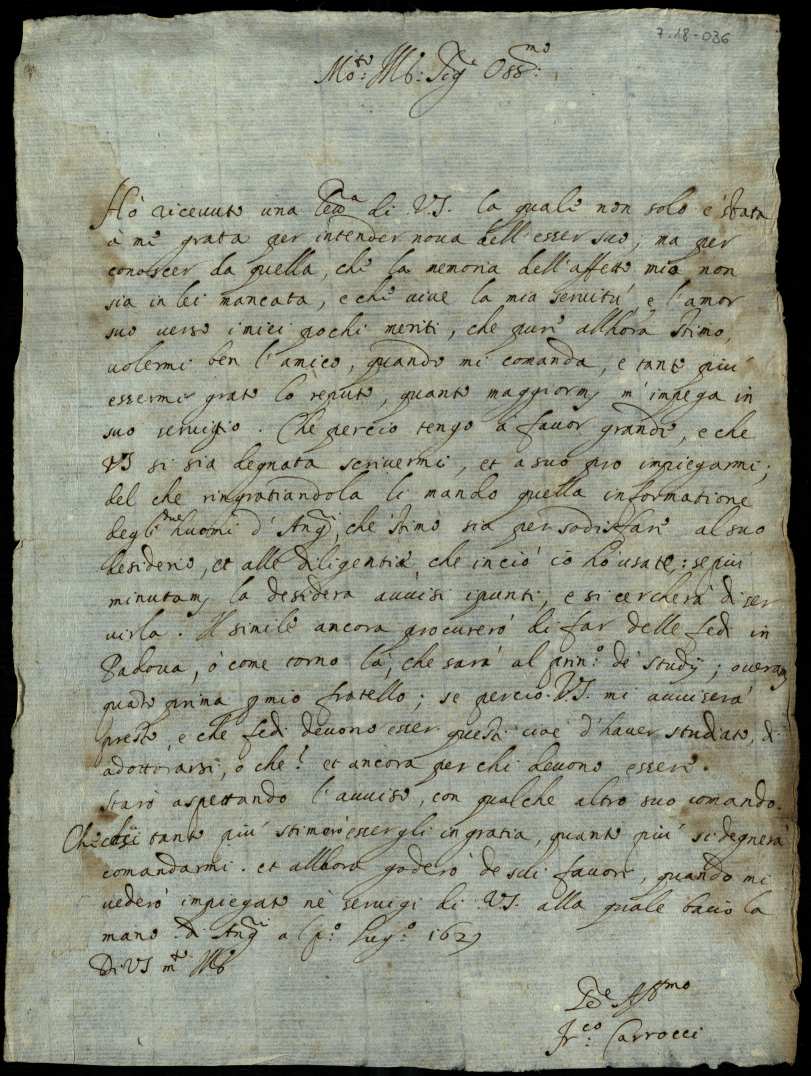 7.18-036
Mo:to Ill: Sig: Oss:mo
Hò ricevuto una lett.a di V.S. la quale non solo è stata
à me grata per intender nova dell'esser suo; ma per
conoscer da quella, che la memoria dell'affetto mio non
sia in lei mancata, e che vive la mia servitù, e l'amor
suo verso i miei pochi meriti, che pure all'hora stimo,
volermi ben l'amico, quando mi comanda, e tanto più
essermi grato lo reputo, quanto maggiorm. m'impega in
suo servigio. Che perciò tengo à favor grande, e che
VS si sia degnata scrivermi, et a suo pro impiegarmi;
del che ringratiandola li mando quella informatione
degl' huomi d'Ang.i, che stimo sia per sodisfare al suo
desiderio, et alle diligentie che in ciò io ho usate: se più
minutam. la desidera avvisi i punti, e si cercherà di ser
virla. Il simile ancora procurerò di far delle fedi in
Padova, ò come torno là, che sarà al prin.o de' studij; overam
quato prima p mio fratello; se perciò V.S. mi avviserà
presto, e che fedi devono esser queste cioè d'haver studiato, di
adottorarsi, ò che? et ancora per chi devono essere.
Starò aspettando l'avviso, con qualche altro suo comando.
Che così tanto più stimerò essergli in gratia, quanto più si degnerà
comandarmi. et all'hora goderò de suoi favori, quando mi
vederò impiegato nè servigi di V.S. alla quale bacio la
mano. d'Ang.i a l p.o Lug.o 1629
Di VS m.to Ill
Se.re Aff.mo
Fr:co Carrocci